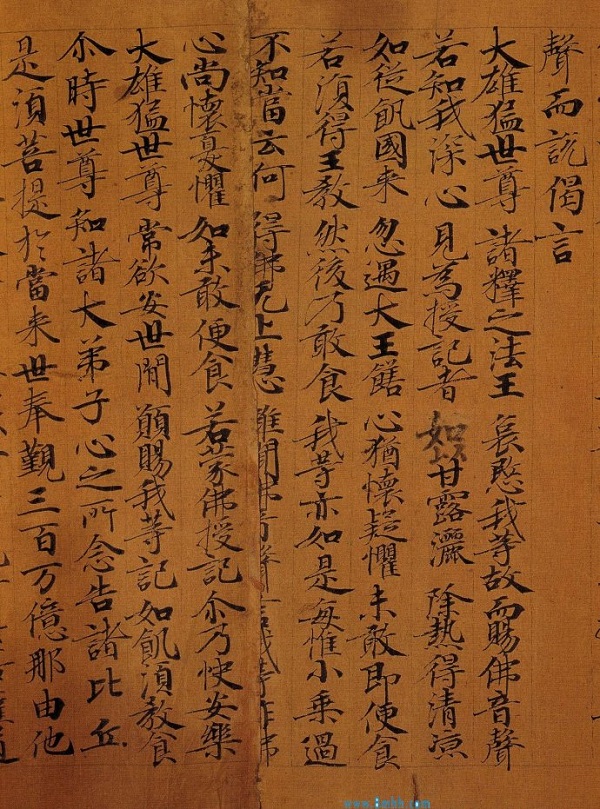 聲而說偈言
大雄猛世尊 諸釋之法王 哀愍我等故而賜佛音聲
若知我深心 見為授記者 如以甘露灑 除熱得清涼
如從飢國来 忽遇大王饍 心猶懷疑懼 未敢即便食
若須得王教 然後乃敢食 我等亦如是 每惟小乘過
不知當云何 得佛无上慧 雖聞佛音聲 言我等作佛
心尚懷憂懼 如未敢便食 若蒙佛授記 尒乃快安樂
大雄猛世尊 常欲安世間 願賜我等記 如飢須教食
尒時世尊知諸大弟子心之所念告諸比丘
是須菩提於當来世奉覲三百万億那由他